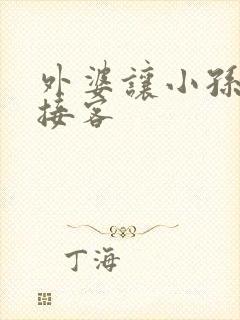 外婆讓小孫
接客
丁海